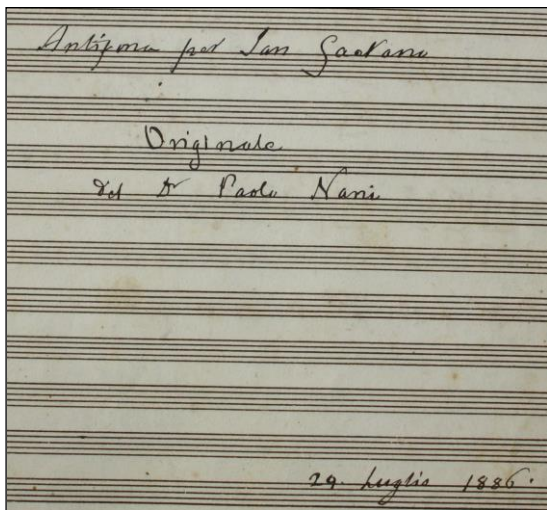 Antifona per San Gaetano
Originale
del Dr Paolo Nani
29. Luglio 1886.